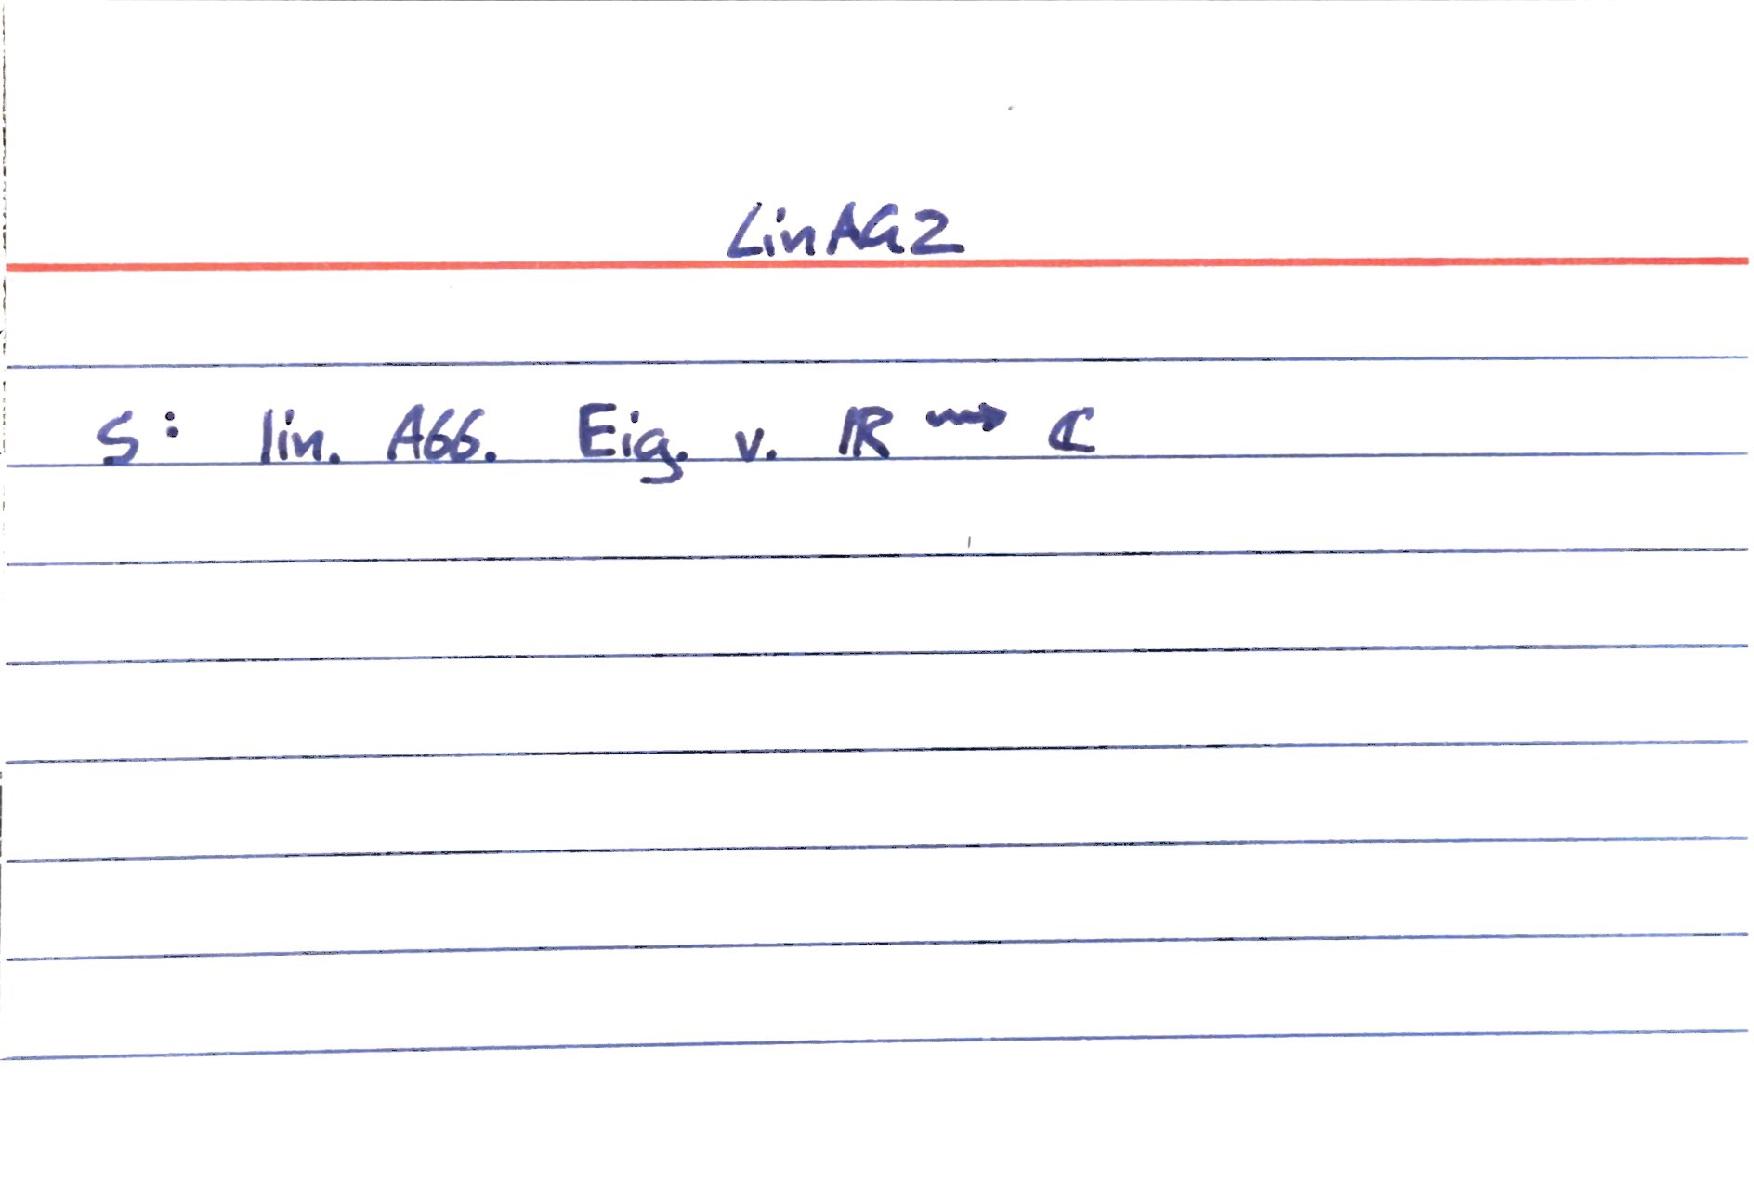 LinAG2
S: lin. Abb. Eig. v. ℝ ⇝ ℂ